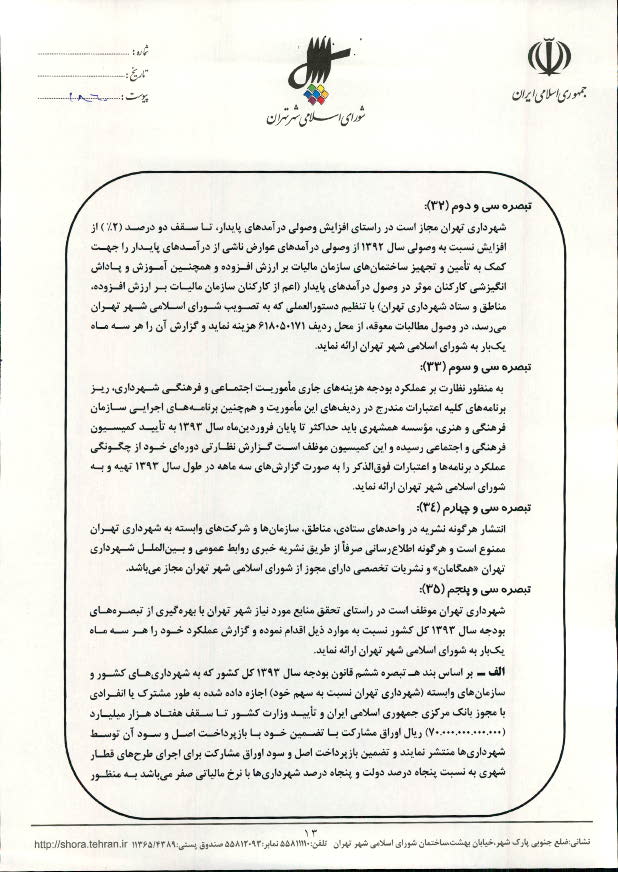 جمهوری اسلامی ایران
شورای اسلامی شهر تهران
شماره :
تاریخ :
پیوست :
تبصره سی و دوم (۳۲):
شهرداری تهران مجاز است در راستای افزایش وصولی درآمدهای پایدار، تا سقف دو درصد (۲٪) از
افزایش نسبت به وصولی سال ۱۳۹۲ از وصولی درآمدهای عوارض ناشی از درآمدهای پایدار را جهت
کمک به تأمین و تجهیز ساختمان‌های سازمان مالیات بر ارزش افزوده و همچنین آموزش و پاداش
انگیزشی کارکنان موثر در وصول درآمدهای پایدار (اعم از کارکنان سازمان مالیات بر ارزش افزوده،
مناطق و ستاد شهرداری تهران) با تنظیم دستورالعملی که به تصویب شورای اسلامی شهر تهران
می‌رسد، در وصول مطالبات معوقه، از محل ردیف ۶۱۸۰۵۰۱۷۱ هزینه نماید و گزارش آن را هر سه ماه
یک‌بار به شورای اسلامی شهر تهران ارائه نماید.
تبصره سی و سوم (۳۳):
به منظور نظارت بر عملکرد بودجه هزینه‌های جاری مأموریت اجتماعی و فرهنگی شهرداری، ریز
برنامه‌های کلیه اعتبارات مندرج در ردیف‌های این مأموریت و هم‌چنین برنامه‌های اجرایی سازمان
فرهنگی و هنری، مؤسسه همشهری باید حداکثر تا پایان فروردین‌ماه سال ۱۳۹۳ به تأیید کمیسیون
فرهنگی و اجتماعی رسیده و این کمیسیون موظف است گزارش نظارتی دوره‌ای خود از چگونگی
عملکرد برنامه‌ها و اعتبارات فوق‌الذکر را به صورت گزارش‌های سه ماهه در طول سال ۱۳۹۳ تهیه و به
شورای اسلامی شهر تهران ارائه نماید.
تبصره سی و چهارم (۳۴):
انتشار هرگونه نشریه در واحدهای ستادی، مناطق، سازمان‌ها و شرکت‌های وابسته به شهرداری تهران
ممنوع است و هرگونه اطلاع‌رسانی صرفاً از طریق نشریه خبری روابط عمومی و بین‌الملل شهرداری
تهران «همگامان» و نشریات تخصصی دارای مجوز از شورای اسلامی شهر تهران مجاز می‌باشد.
تبصره سی و پنجم (۳۵):
شهرداری تهران موظف است در راستای تحقق منابع مورد نیاز شهر تهران با بهره‌گیری از تبصره‌های
بودجه سال ۱۳۹۳ کل کشور نسبت به موارد ذیل اقدام نموده و گزارش عملکرد خود را هر سه ماه
یک‌بار به شورای اسلامی شهر تهران ارائه نماید.
الف ــ بر اساس بند هـ تبصره ششم قانون بودجه سال ۱۳۹۳ کل کشور که به شهرداری‌های کشور و
سازمان‌های وابسته (شهرداری تهران نسبت به سهم خود) اجازه داده شده به طور مشترک یا انفرادی
با مجوز بانک مرکزی جمهوری اسلامی ایران و تأیید وزارت کشور تا سقف هفتاد هزار میلیارد
(۷۰.۰۰۰.۰۰۰.۰۰۰.۰۰۰) ریال اوراق مشارکت با تضمین خود با بازپرداخت اصل و سود آن توسط
شهرداری‌ها منتشر نمایند و تضمین بازپرداخت اصل و سود اوراق مشارکت برای اجرای طرح‌های قطار
شهری به نسبت پنجاه درصد دولت و پنجاه درصد شهرداری‌ها با نرخ مالیاتی صفر می‌باشد به منظور
۱۳
نشانی:ضلع جنوبی پارک شهر،خیابان بهشت،ساختمان شورای اسلامی شهر تهران تلفن:۵۵۸۱۱۱۱۰ نمابر:۵۵۸۱۲۰۹۳ صندوق پستی:۱۱۳۶۵/۴۳۸۹ http://shora.tehran.ir